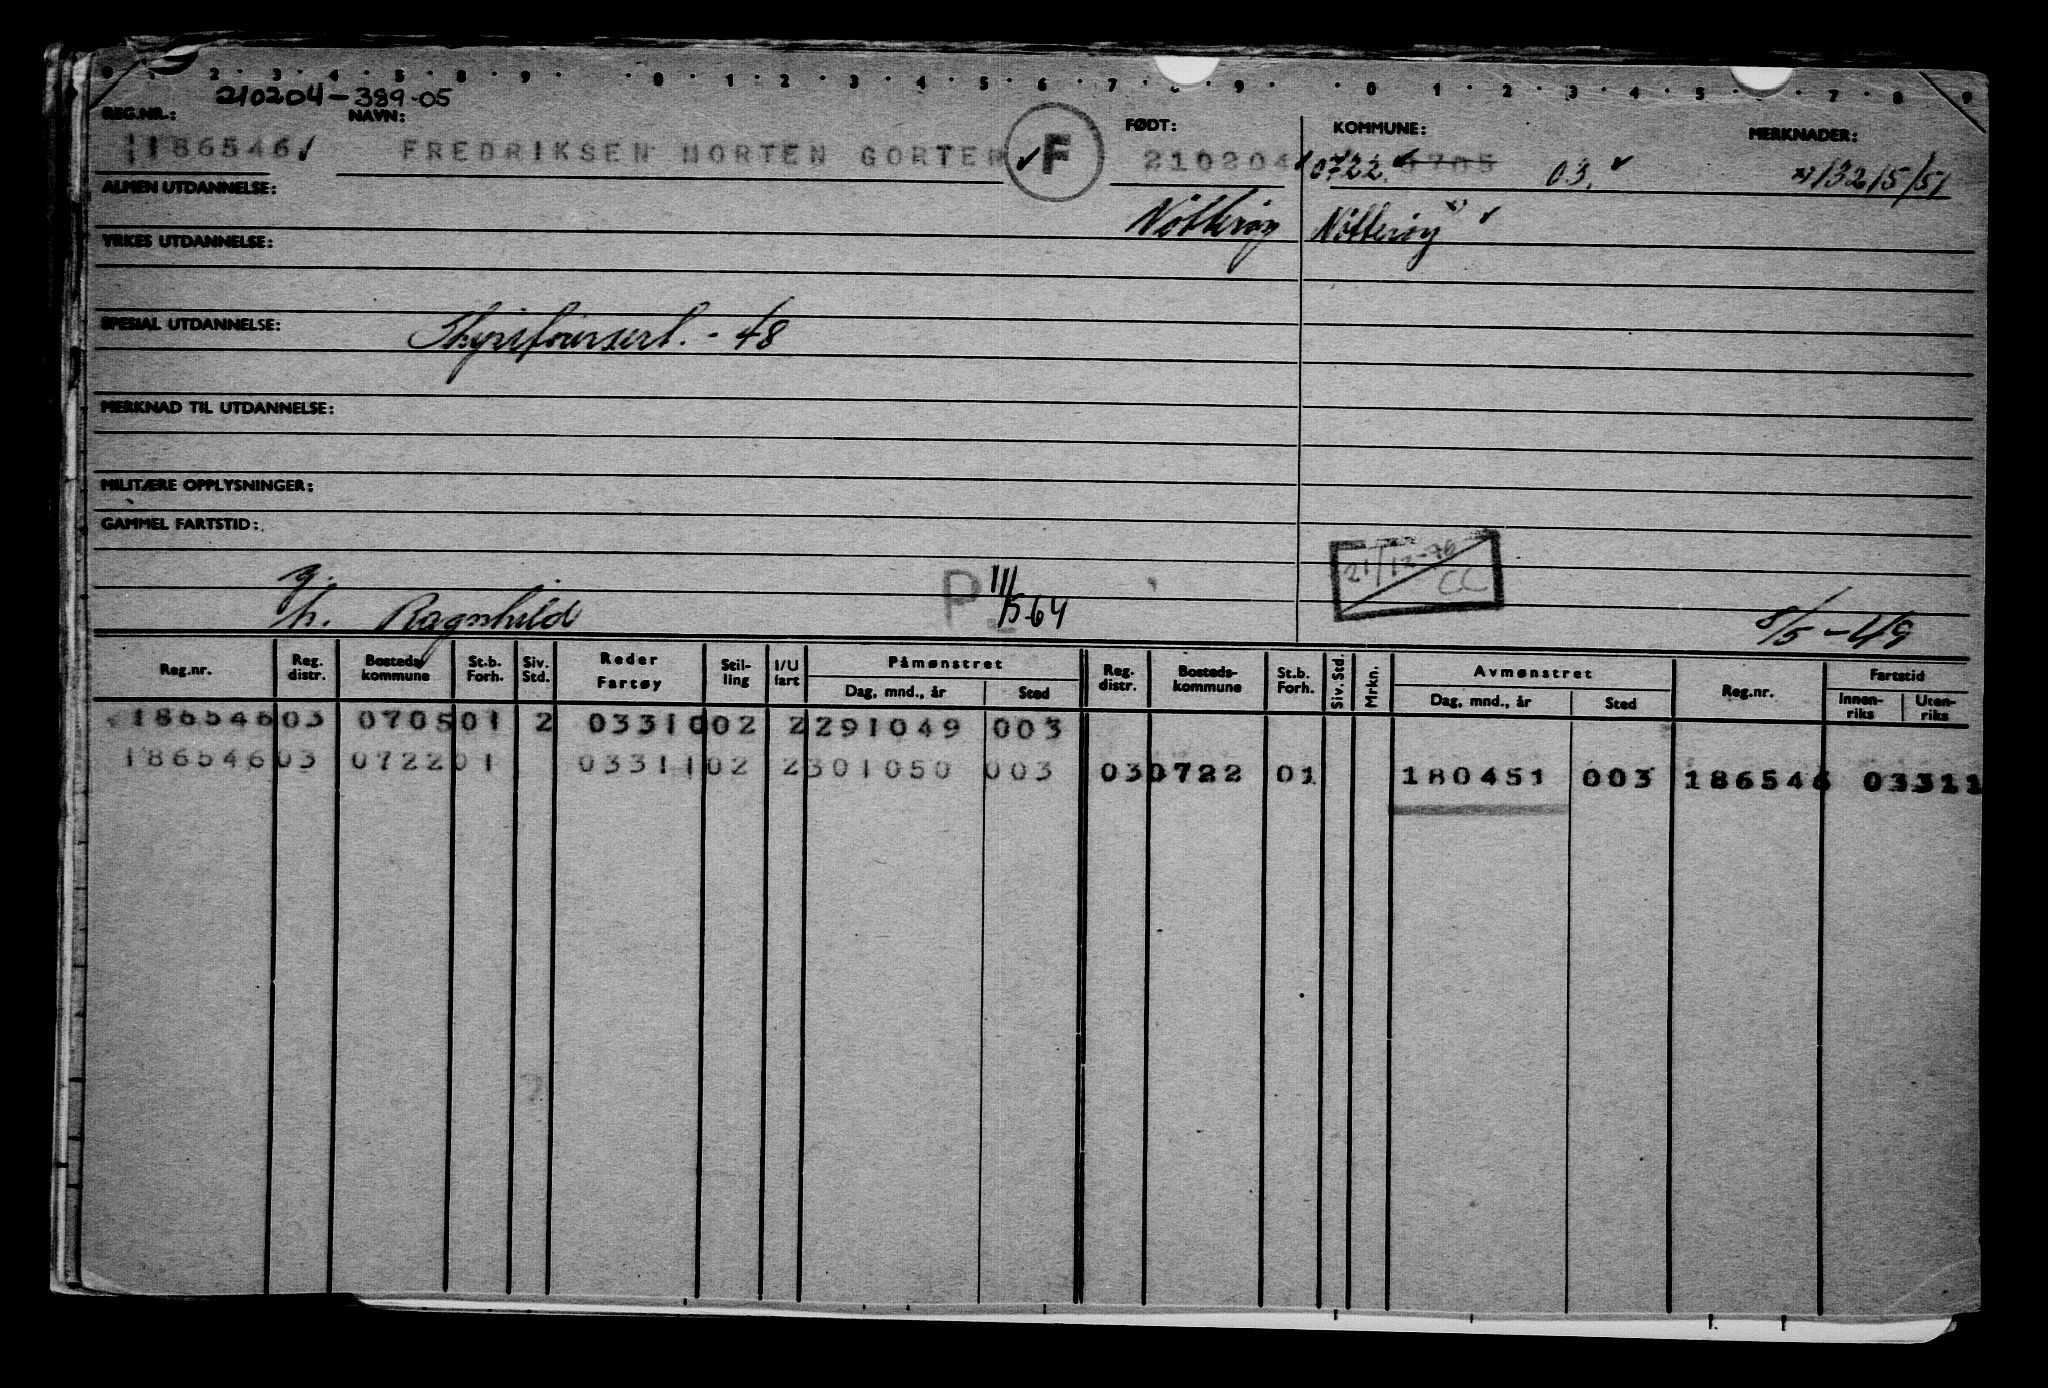 0 1 2 3 4 5 6 7 8 9 0 1 2 3 4 5 6 7 9 0 1 2 3 4 5 7 8 9
210204-389-05
REG.NR.: NAVN: FØDT: KOMMUNE: MERKNADER:
186546 FREDRIKSEN MORTEN GORTEN F 210204 0722 0705 03. x) 13215/51
ALMEN UTDANNELSE:
Nøtterøy Nøtterøy x)
YRKES UTDANNELSE:
SPESIAL UTDANNELSE: -48
MERKNAD TIL UTDANNELSE:
MILITÆRE OPPLYSNINGER:
GAMMEL FARTSTID:
21/12-76 CC
g.
h. Ragnhild P 11/5-64 8/5-49
Reg.nr. Reg. distr. Bosteds- kommune St.b. Forh. Siv. Std. Reder Fartøy Stil- ling I/U fart Påmønstret Dag, mnd., år Sted Reg. distr. Bosteds- kommune St.b. Forh. Siv. Std. Mrkn. Avmønstret Dag, mnd., år Sted Reg.nr. Fartstid Innen- riks Uten- riks
186546 03 0705 01 2 03310 02 2 291049 003
186546 03 0722 01 03311 02 2 301050 003 03 0722 01 180451 003 186546 03311